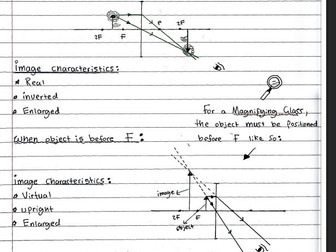 2F
F
F
2F
image characteristics:
• Real
• inverted
• Enlarged
For a Magnifying Glass,
the object must be positioned
before F like so:
when object is before F:
image characteristics:
• Virtual
• upright
• Enlarged
image
2F
F
object